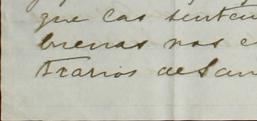 que las senten
buenas nos e
trarios de San